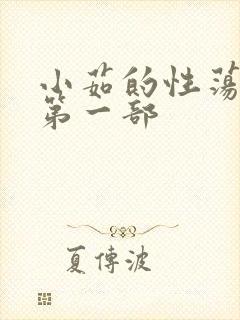 小茹的性荡
第一部
夏傅波